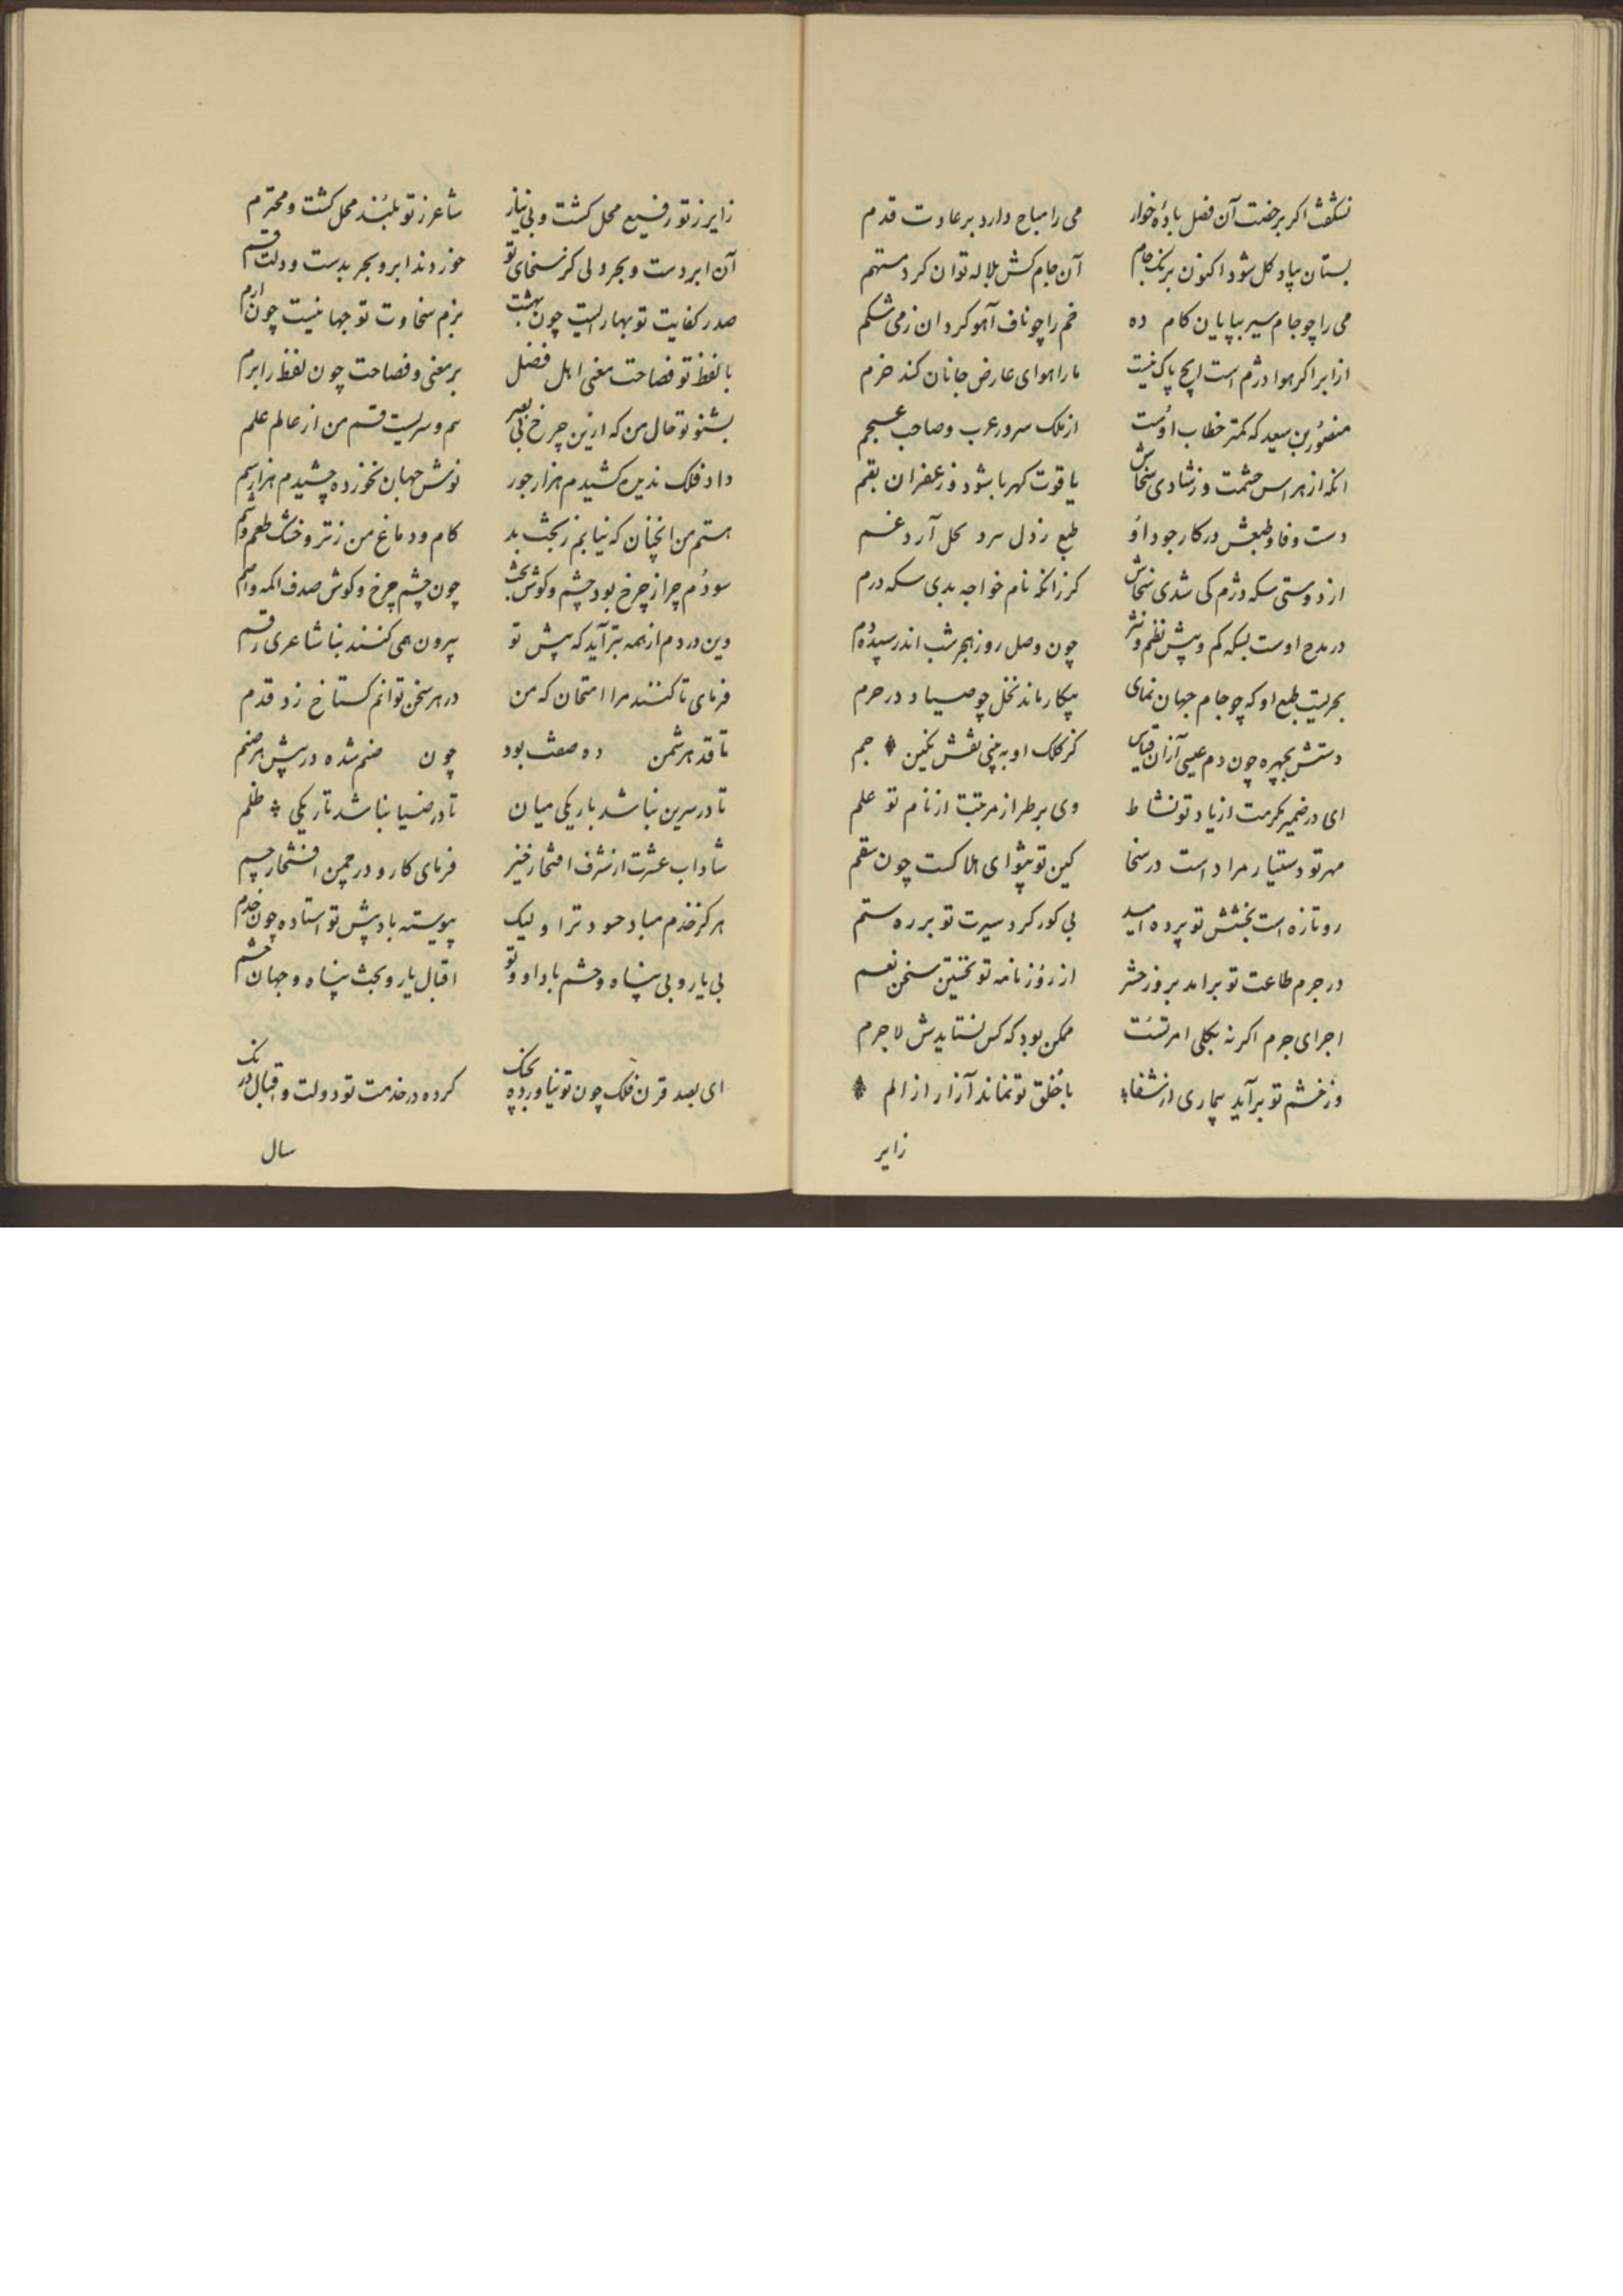 نشکفت اکر برخصت آن فصل باده خوار می را مباح دارد بر عادت قدم
بستان بیاد کل شود اکنون برنک جام آن جام کش بلاله توان کرد متهم
می را چو جام سیر بپایان کام ده خم را چو ناف آهو کردان زمی شکم
از ابر اکر هوا دژم است ایچ باک نیست ما را هوای عارض جانان کند خرم
منصور بن سعید که کمتر خطاب اوست از ملک سرور عرب و صاحب عجم
انکه از هراس حشمت وز شادی سخاش یاقوت کهربا شود و زعفران بقم
دست و فا و طبعش در کار جود او طبع زدل سرد بحل آرد غم
از دوستی سکه درم کی شدی سخاش کر زانکه نام خواجه بدی سکه درم
در مدح اوست بسکه کم و بیش نظم و نثر چون وصل روز هجر شب اندر سپیده دم
بحریست طبع او که چو جام جهان نمای بیکار ماند نخل چو صیاد در حرم
دستش بچهره چون دم عیسی از آن قیاس کز کلک او به بینی نقش نکین جم
ای در ضمیر مکرمت از یاد تو نشاط وی بر طراز مرتبت از نام تو علم
مهر تو دستیار مراد است در سخا کین تو پیشوای هلاکست چون سقم
رو تازه است بخشش تو بر ره امید بی کور کرد سیرت تو بر ره ستم
در جرم طاعت تو برامد بروز حشر از روزنامه تو نخستین سخن نعم
اجرای جرم اکر نه بکلی امر تست ممکن بود که کس نستایدش لاجرم
وز خشم تو برآید بیماری از شفا با خلق تو نماند آزار از الم
زایر
زایر ز تو رفیع محل کشت و بی نیاز شاعر ز تو بلند محل کشت و محترم
آن ابر دست و بحر دلی کز سخای تو خوردند ابر و بحر بدست و دلت قسم
صدر کفایت تو بهاریست چون بهشت بزم سخاوت تو جهانیست چون ارم
با لفظ تو فصاحت معنی اهل فضل بر معنی و فصاحت چون لفظ رابرم
بشنو تو حال من که ازین چرخ بی بصر هم و سریست قسم من از عالم علم
داد فلک ندیده کشیدم هزار جور نوش جهان نخورده چشیدم هزار سم
هستم من انچنان که نیابم ز بخت بد کام و دماغ من ز تر و خشک طعم و شم
سودم چرا ز چرخ بود چشم و کوش بخت چون چشم چرخ و کوش صدف اکمه و اصم
وین دردم از همه بتر آید که پیش تو بیرون همی کنند بنا شاعری رقم
فرمای تا کنند مرا امتحان که من در هر سخن توانم کستاخ زد قدم
تا قد هر شمن ده صفت بود چون صنم شده در پیش هر صنم
تا در سرین نباشد باریکی میان تا در ضیا نباشد تاریکی ظلم
شاداب عشرت از شرف افتخار خیز فرمای کار و در چمن افتخار چم
هرکز خدم مباد حسود ترا و لیک پیوسته باد پیش تو استاده چون خدم
بی یار و بی پناه و حشم باد او و تو اقبال یار و بخت پناه و جهان حشم
ای بصد قرن فلک چون تو نیاورده بچنک کرده در خدمت تو دولت و اقبال درنک
سال